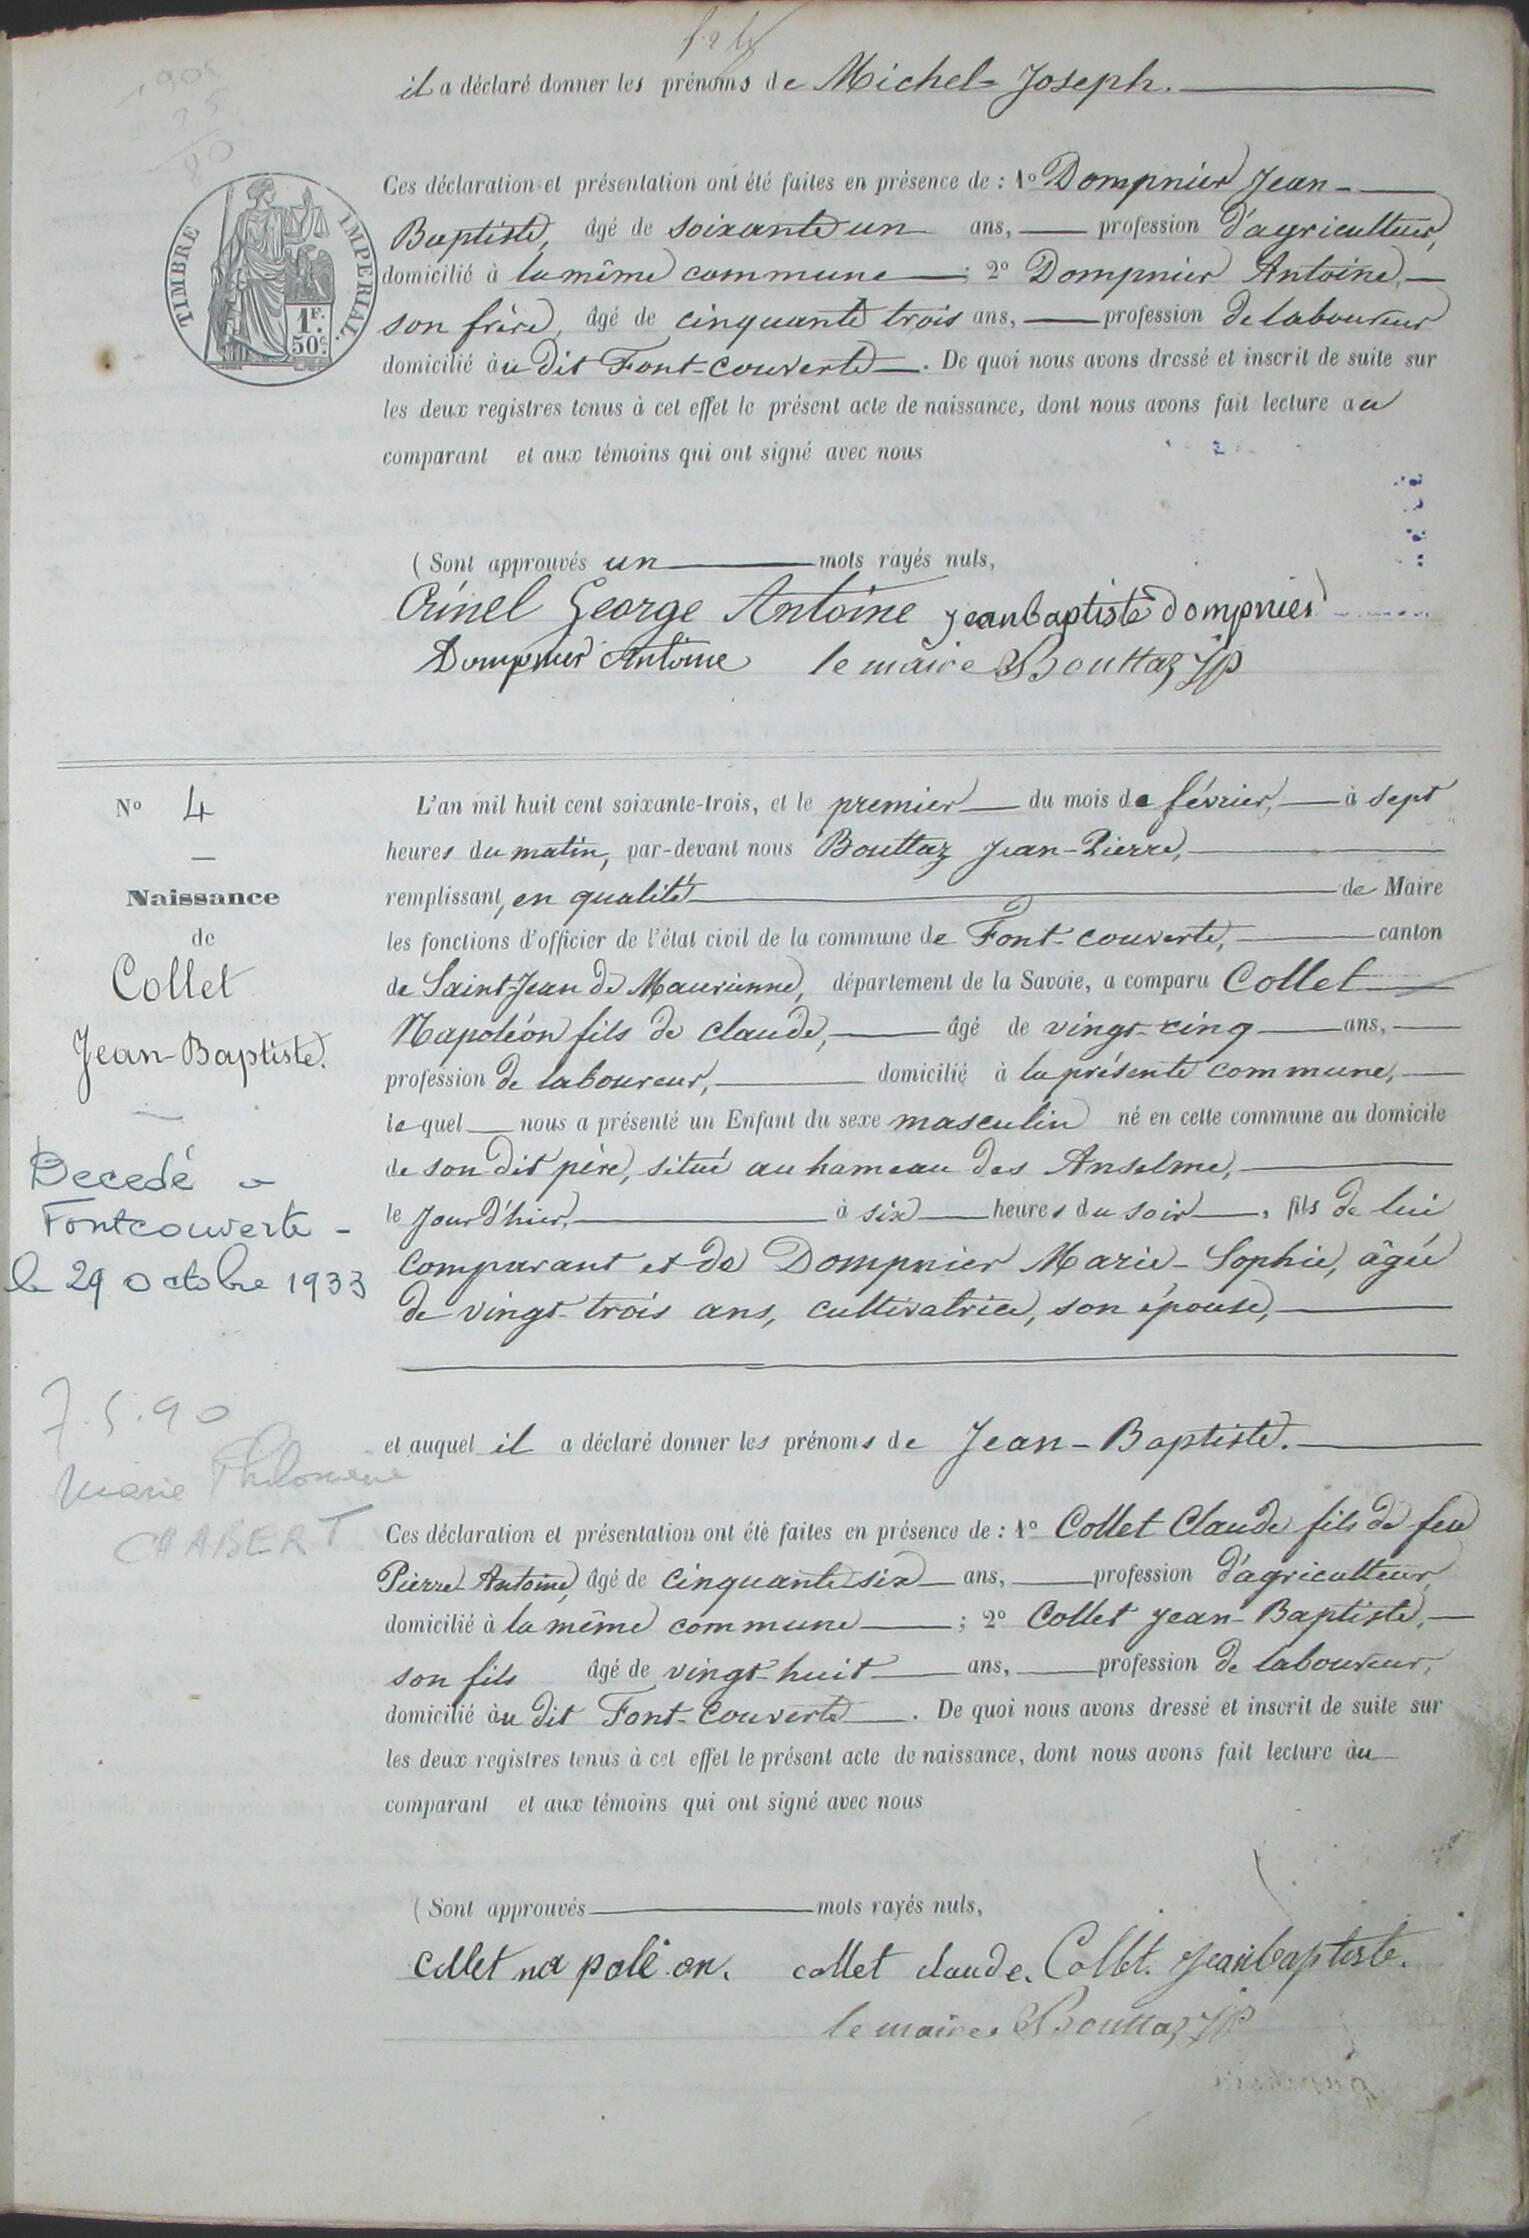 il a déclaré donner les prénoms de Michel-Joseph.
Ces déclaration et présentation ont été faites en présence de : 1º Dompnier Jean-
Baptiste, âgé de soixante un ans, profession d'agriculteur,
domicilié à la même commune ; 2º Dompnier Antoine,
son frère, âgé de cinquante trois ans, profession de laboureur
domicilié àu dit Font-couverte. De quoi nous avons dressé et inscrit de suite sur
les deux registres tenus à cet effet le présent acte de naissance, dont nous avons fait lecture au
comparant et aux témoins qui ont signé avec nous
TIMBRE IMPERIAL.
1F.
50c.
(Sont approuvés un mots rayés nuls,
George Antoine jean baptiste dompnier
Dompnier Antoine le maire Bouttaz JP
Nº 4
Naissance
de
Collet
Jean-Baptiste.
Decedé a
Fontcouverte -
le 29 octobre 1933
7.5.90
Marie Philomène
CHABERT
L'an mil huit cent soixante-trois, et le premier du mois de février, à sept
heures du matin, par-devant nous Bouttaz Jean-Pierre,
remplissant, en qualité de Maire
les fonctions d'officier de l'état civil de la commune de Font-couverte, canton
de Saint-Jean de Maurienne, département de la Savoie, a comparu Collet
Napoléon fils de claude, âgé de vingt-cinq ans,
profession de laboureur, domicilié à la présente commune,
le quel nous a présenté un Enfant du sexe masculin né en cette commune au domicile
de son dit père, situé au hameau des Anselme,
le jour d'hier, à six heures du soir, fils de lui
comparant et de Dompnier Marie-Sophie, âgée
de vingt-trois ans, cultivatrice, son épouse,
et auquel il a déclaré donner les prénoms de Jean-Baptiste.
Ces déclaration et présentation ont été faites en présence de : 1º Collet Claude fils de feu
Pierre-Antoine, âgé de cinquante six ans, profession d'agriculteur,
domicilié à la même commune ; 2º Collet Jean-Baptiste,
son fils âgé de vingt-huit ans, profession de laboureur,
domicilié àu dit Font-Couverte. De quoi nous avons dressé et inscrit de suite sur
les deux registres tenus à cet effet le présent acte de naissance, dont nous avons fait lecture àu
comparant et aux témoins qui ont signé avec nous
(Sont approuvés mots rayés nuls,
collet na polé on. collet claude. Collet. jean baptiste.
le maire Bouttaz JP